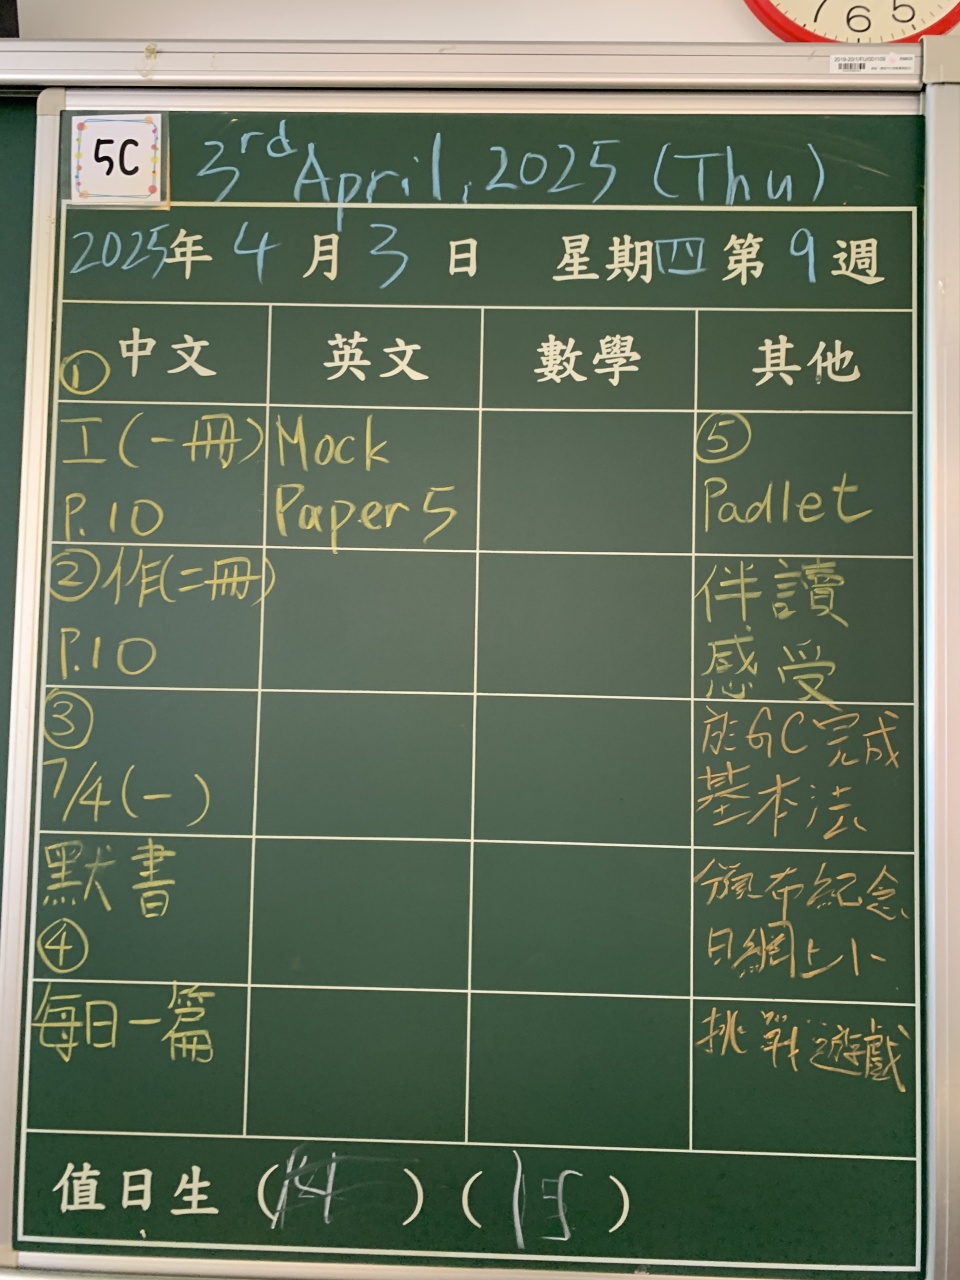 7 6 5
5C
3rd April, 2025 (Thu)
2025年 4 月 3 日 星期四 第 9 週
中文 英文 數學 其他
①
工(一冊)
P.10
②作(二冊)
P.10
③
7/4(一)
默書
④
每日一篇
Mock
Paper 5
⑤
Padlet
伴讀
感受
於GC完成
基本法
頒布紀念
日網上小
挑戰遊戲
值日生 (14) (15)